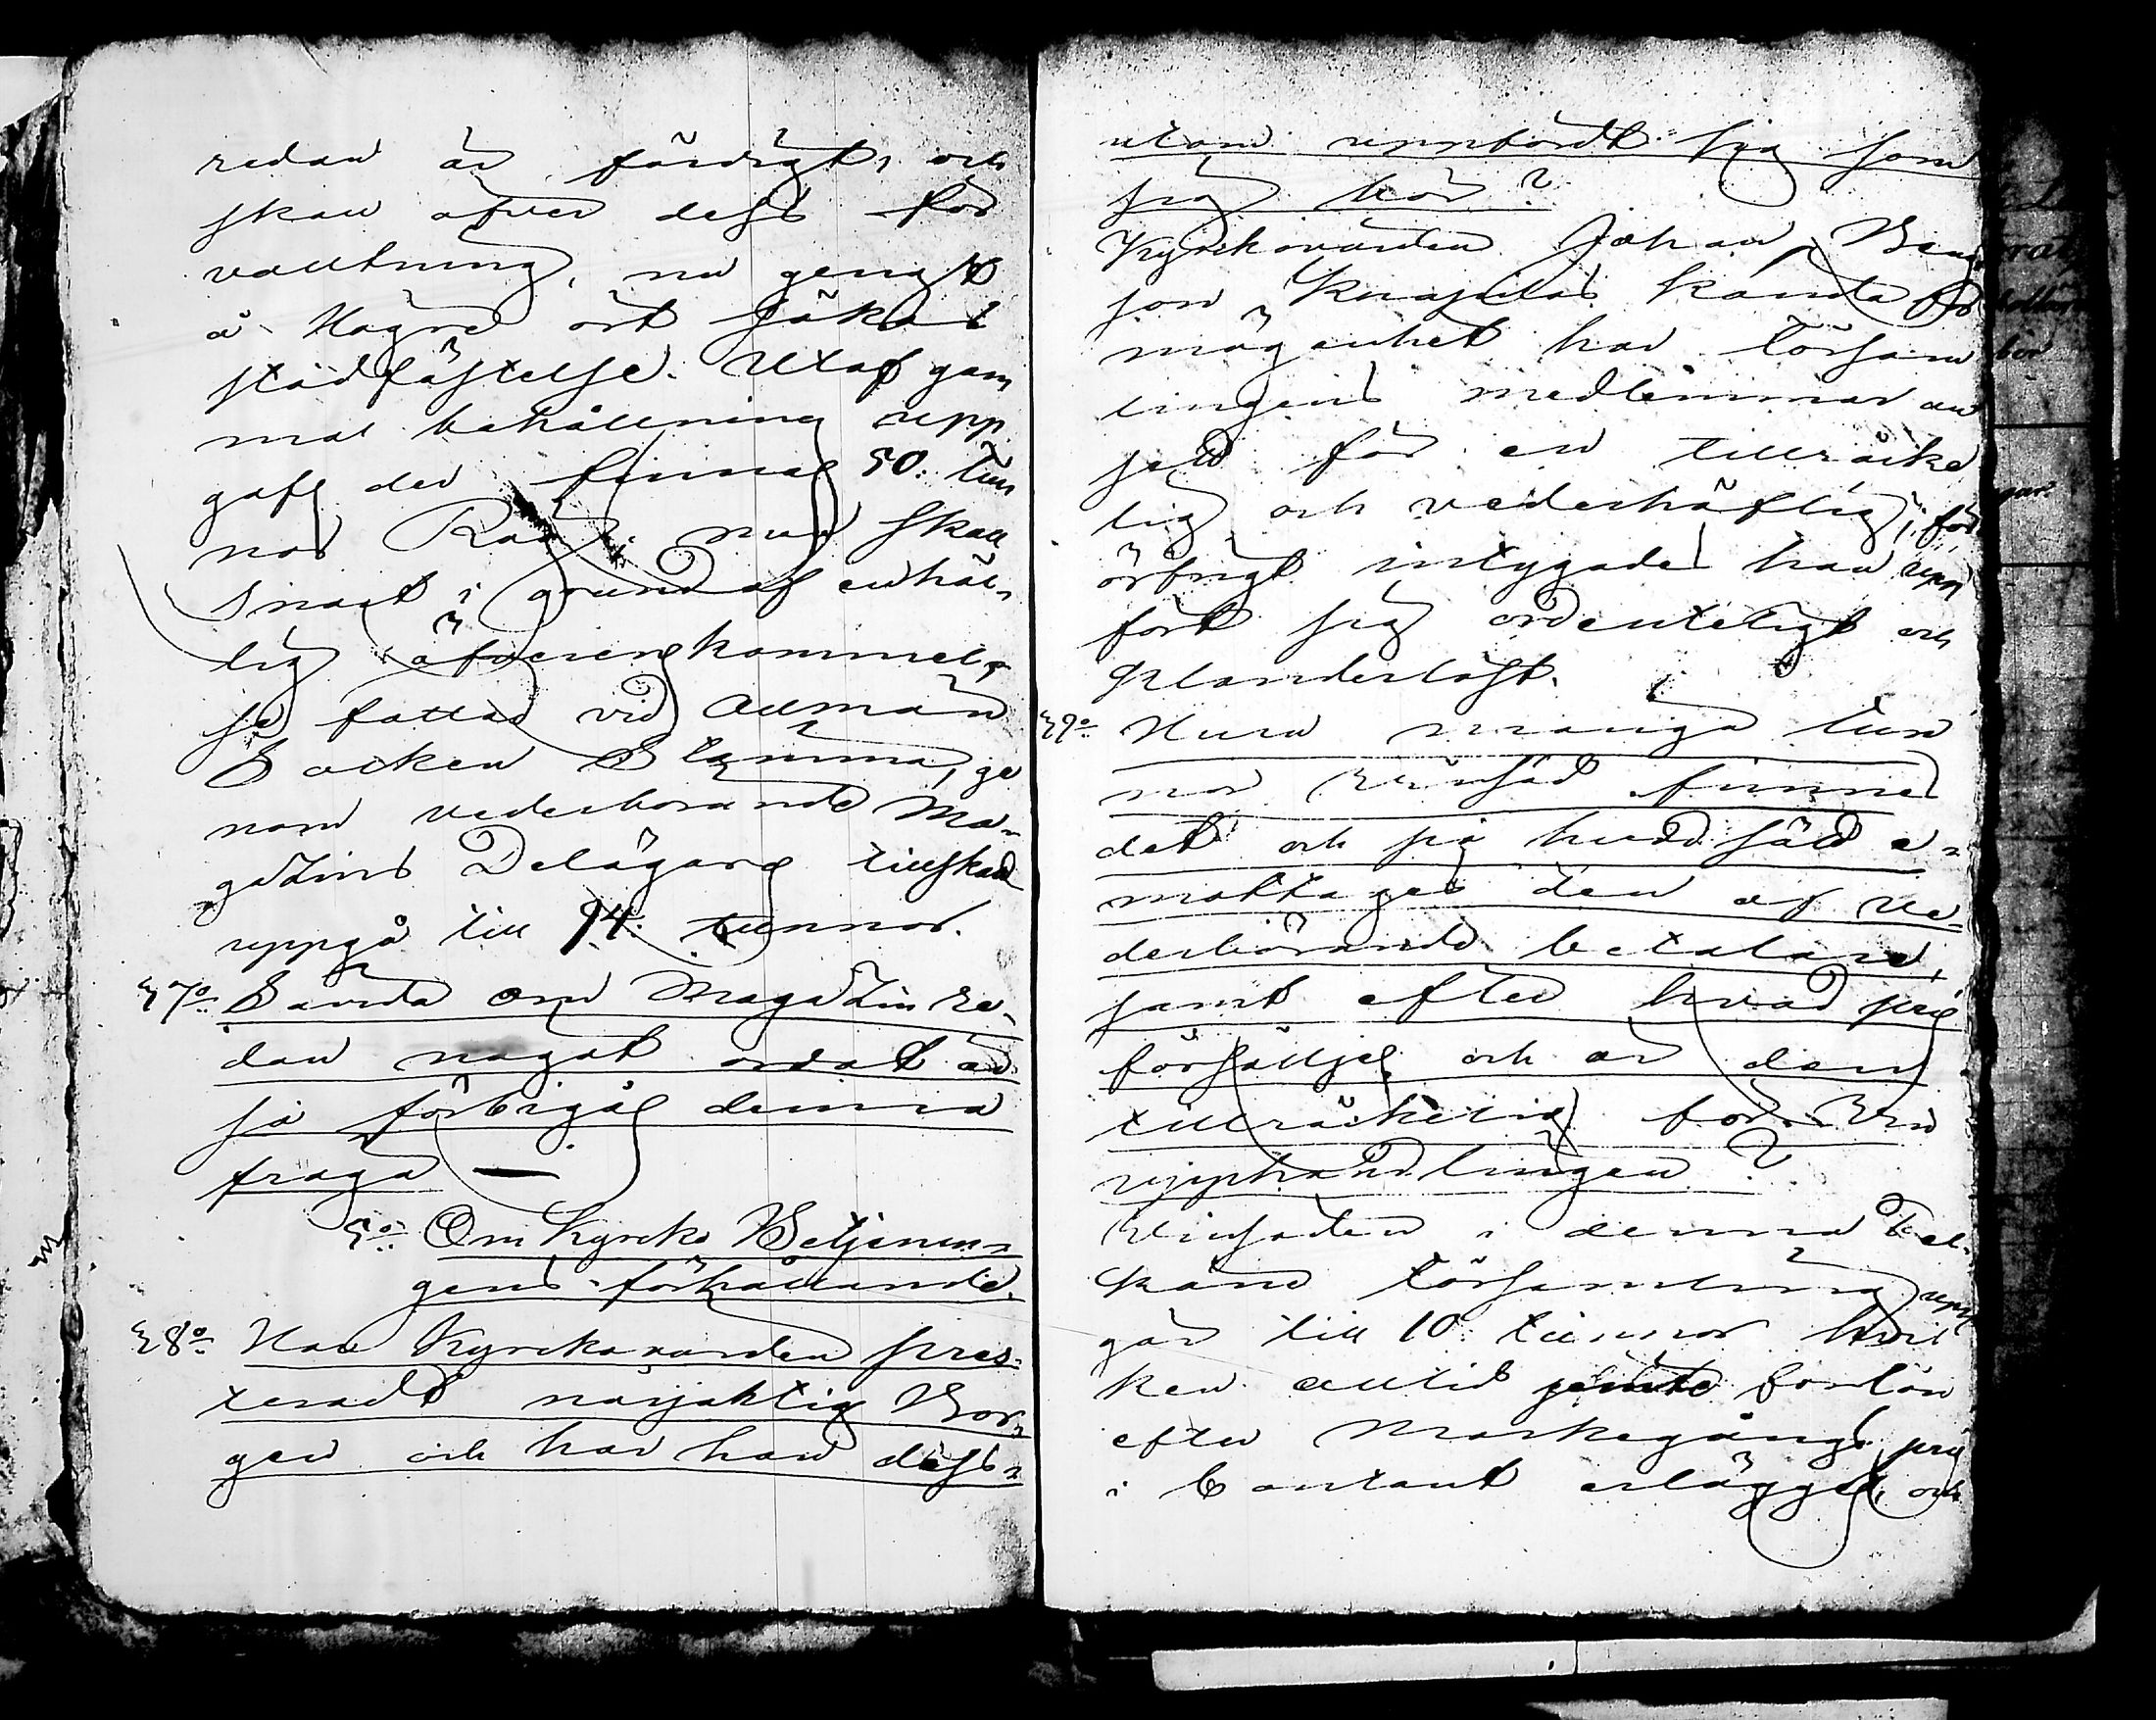 redan är färdigt, och
skall öfver dess för
valltning, nu genast
å Högre ort sökas
stadfästelse. Utaf gam
mal behållning upp
gafs der finnas 50: Tun
nor Råg: nu skall
snart i grund af enhäl-
lig öfverenskommel-
se fattad vid allmän
Socken Stämma, ge
nom vederbörande Ma-
gazins Delägare tillskad
uppgå till 94: tunnor.
§ 7o Sarda om Magazin re-
dan något ordat är
så förbigås denna
fråga —
5o: Om Kyrko Betjenin-
gens förhållande.
§ 8o Har Kyrckovärden pres-
teradt närjaktig Bor-
gen och har han dess-
utom uppfördt sig som
sig bör?
Kyrckovärden Johan
son Knajulas kända för
mögenhet har Försam
lingens medlemmar an
sedd för en tillräcke
lig och vederhäftig; för
öfrigt intygades han upp
fört sig ordenteligt och
klanderlöst.
§ 9o Huru många tun
nor Vinsäd finnes
det och på hvad sätt e-
mottages den af ve-
derbörande betalare,
samt efter hvad pris
försälljes och är den
tillräckelig för Vin
upphandlingen?
Vinsäden i denna
församling upp
går till 10: tunnor hvil
ken alltid jemte forlön
efter Markegångs pris
i Contant erlägges, och